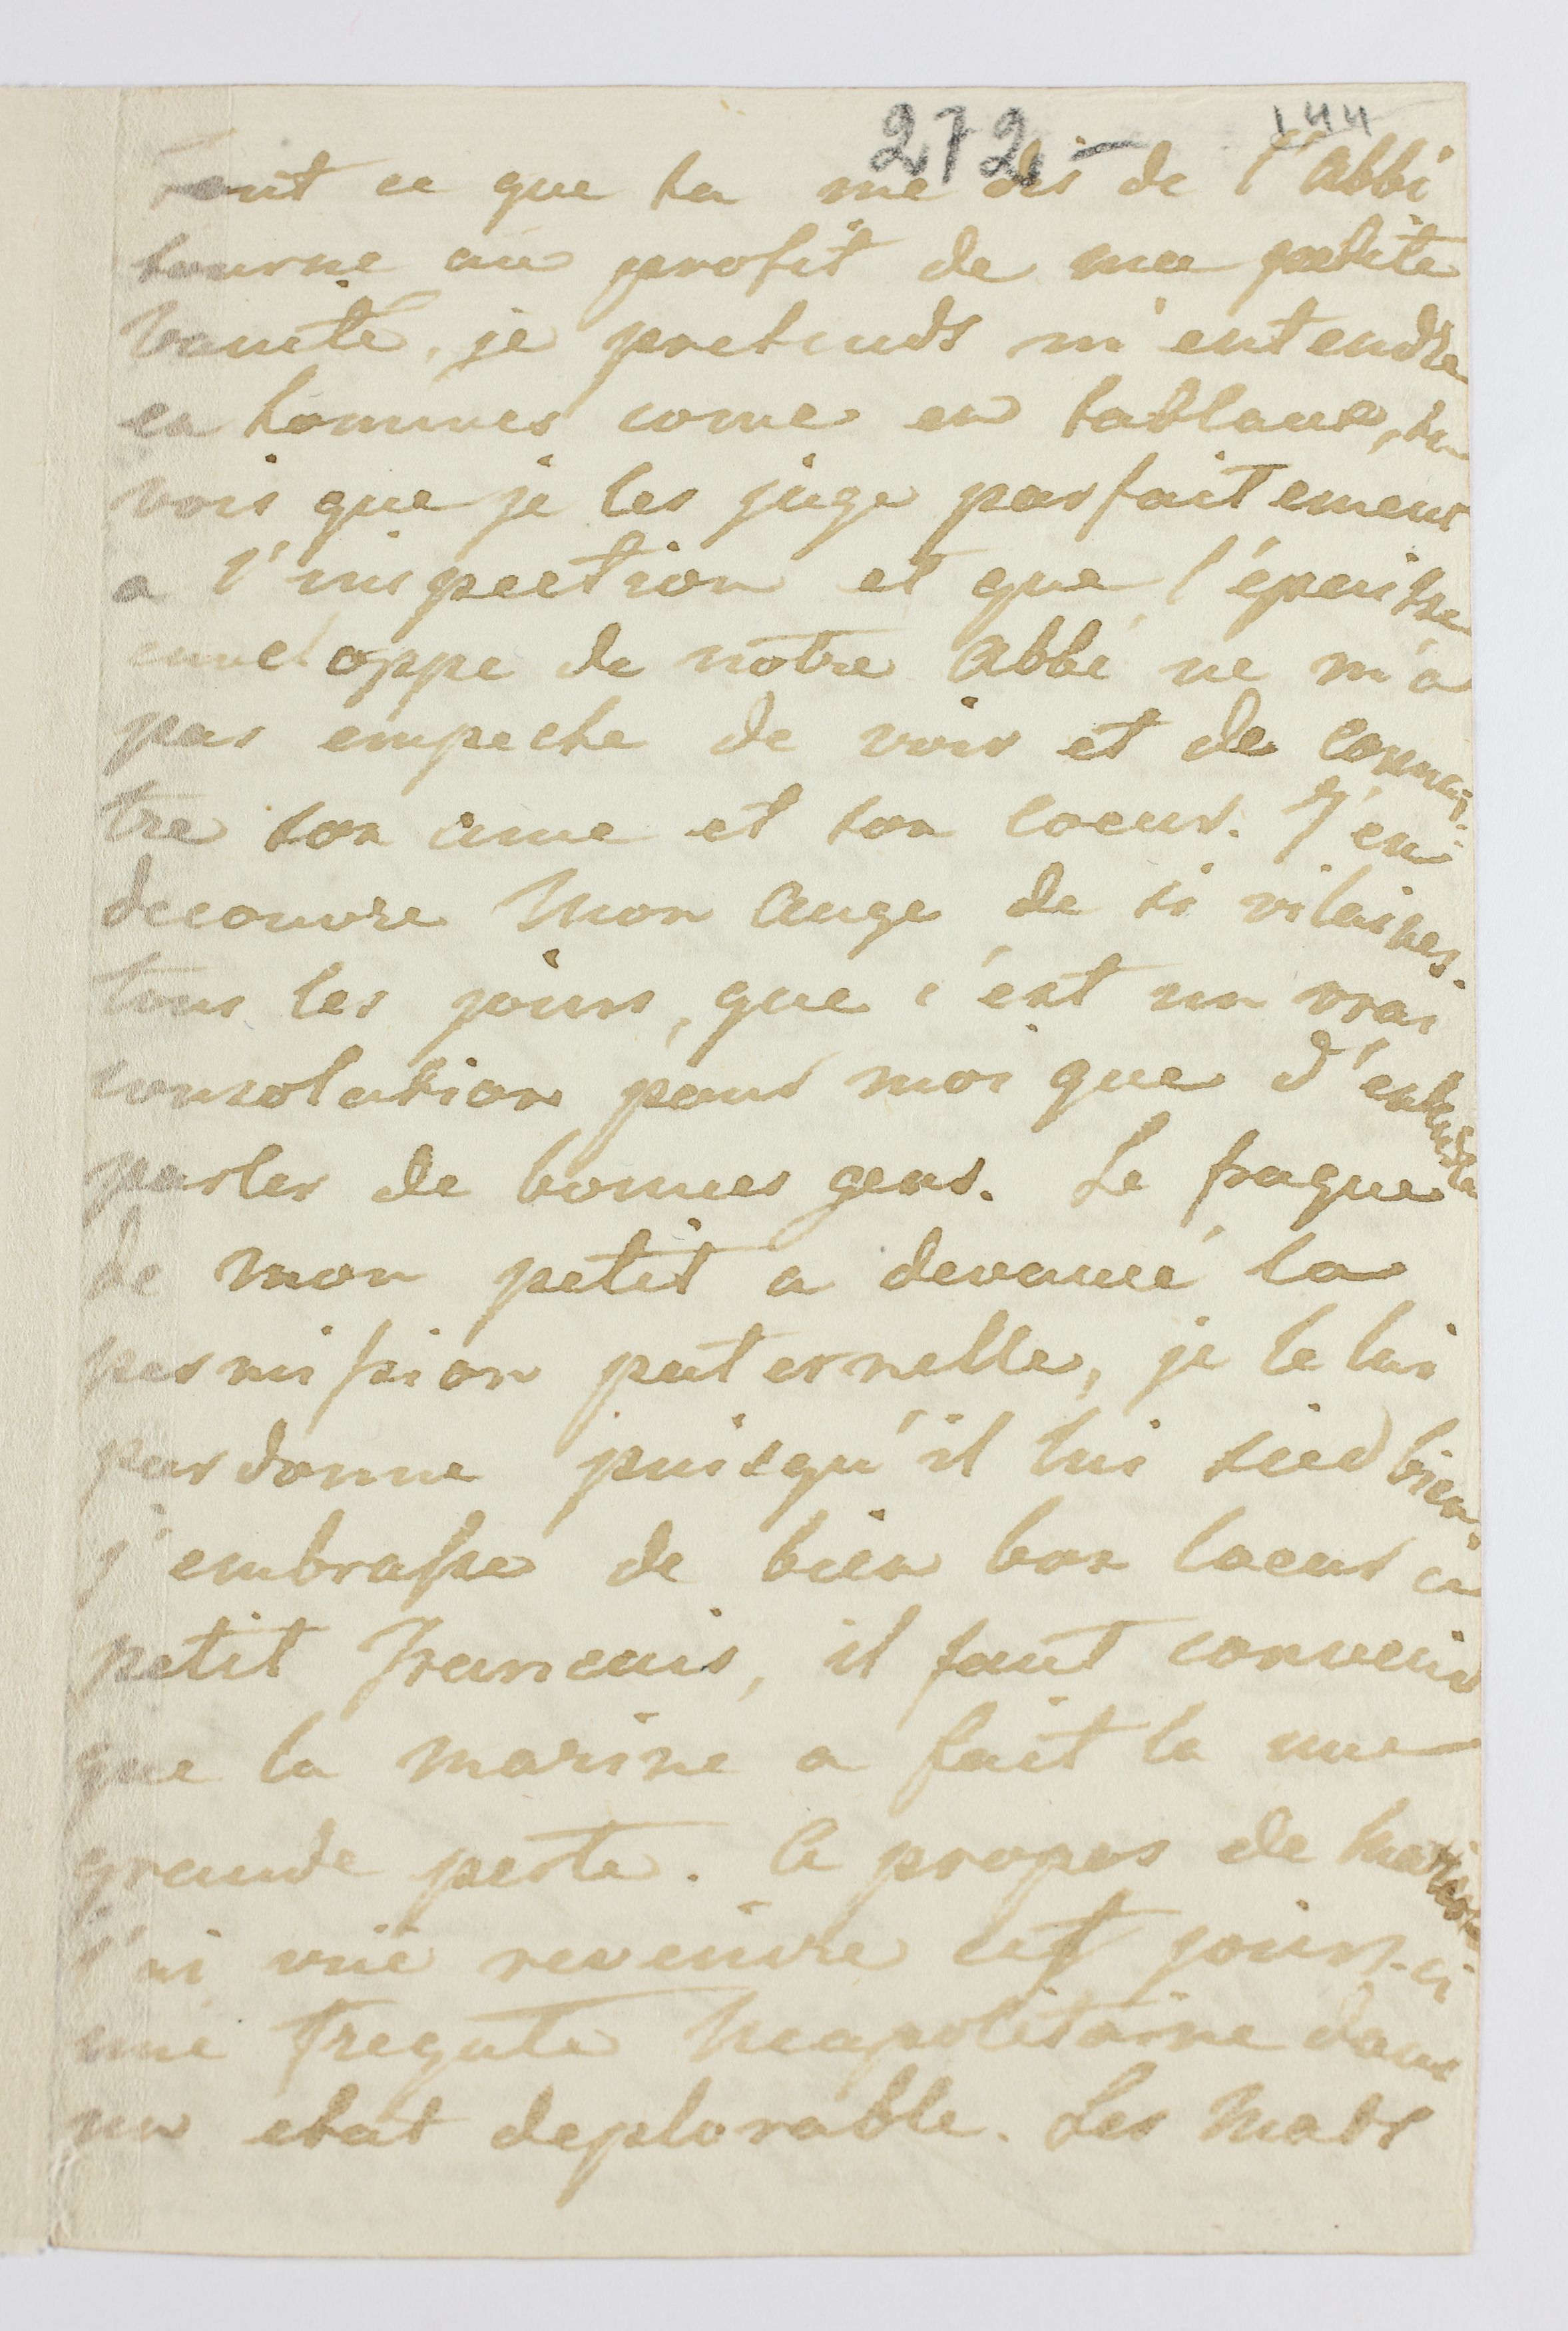 272 - 144
Tout ce que tu me dis de l'Abbé
tourne au profit de ma petite
vanité, je pretends m'entendre
en hommes come en tableaux, tu
vois que je les juge parfaitement
a l'inspection et que l'épaisse
enveloppe de notre Abbé ne m'a
pas empeche de voir et de connai-
tre son ame et son coeur. J'en
decouvre Mon Ange de si vilaines
tous les jours, que c'est un vrai
consolation pour moi que d'entendre
parler de bonnes gens. Le fraque
de mon petit a devancé la
permission paternelle, je le lui
pardonne puisqu'il lui sied bien,
j'embrasse de bien bon coeur ce
petit Francais, il faut convenir
que la marine a fait la une
grande perte. A propos de Marine
j'ai vüe revenire cet jours-ci
une fregate Neapolitaine dans
un etat deplorable. Les Mats